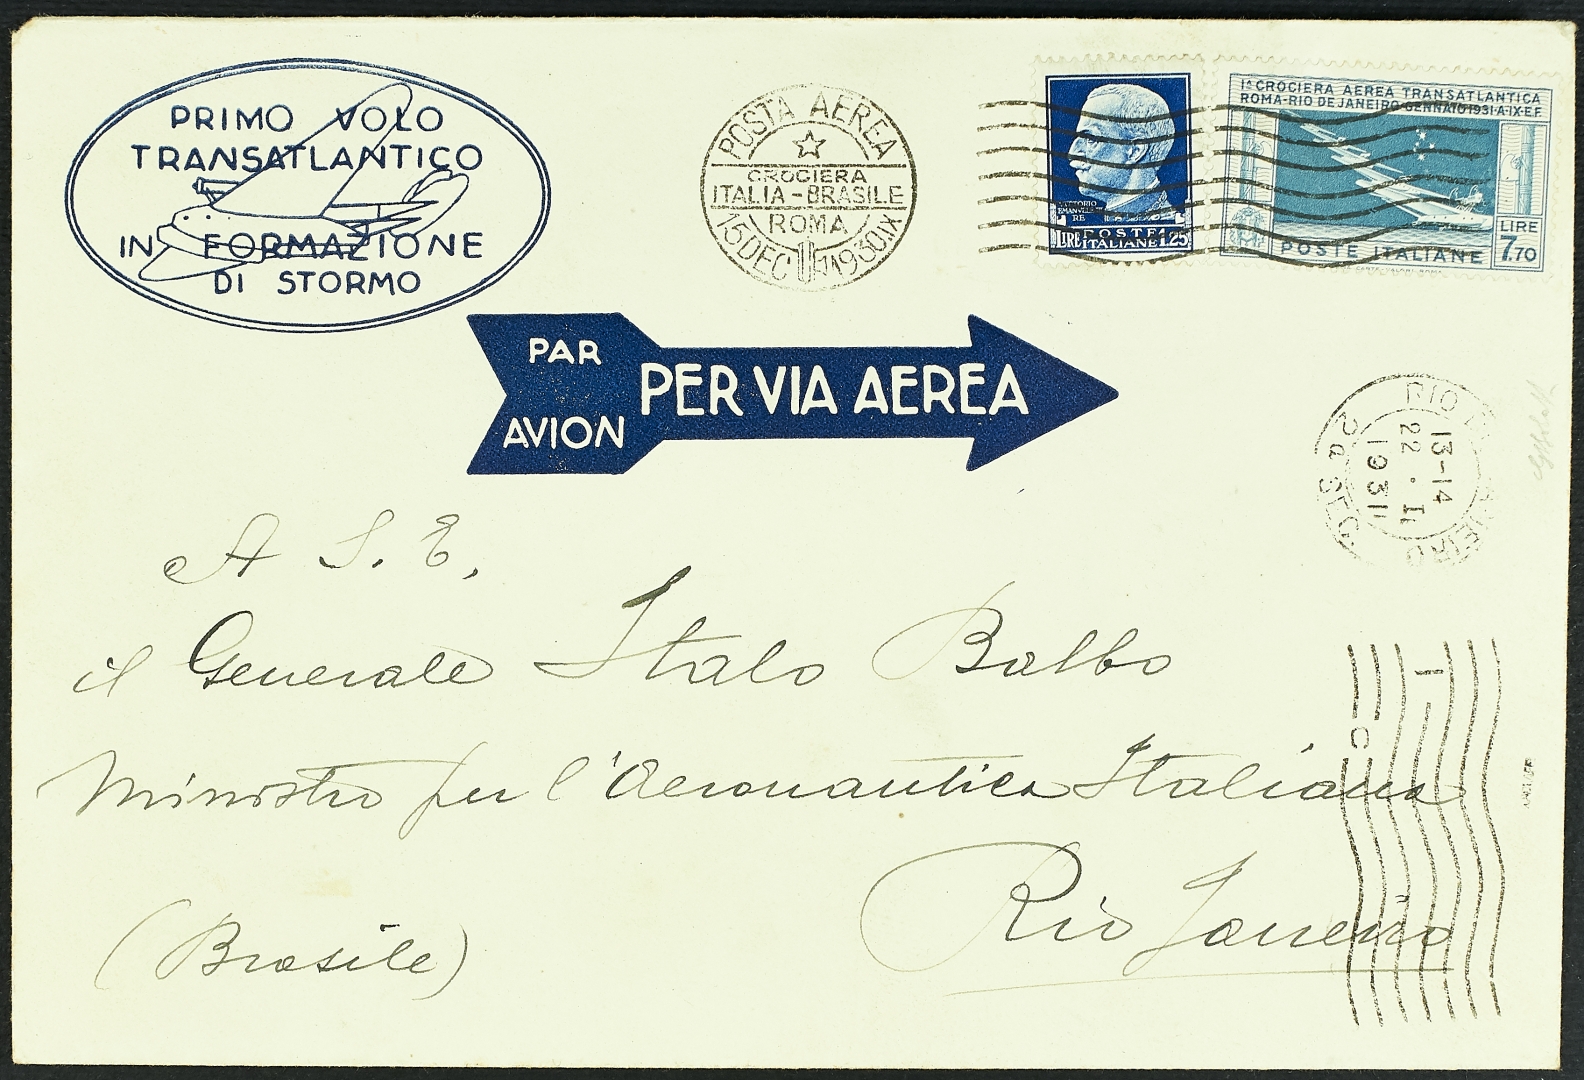 PRIMO VOLO
TRANSATLANTICO
IN FORMAZIONE
DI STORMO
POSTA AEREA
CROCIERA
ITALIA-BRASILE
ROMA
15 DEC 1930.IX
VITTORIO
EMANUELE III
RE
LIRE POSTE ITALIANE 1.25
1ª CROCIERA AEREA TRANSATLANTICA
ROMA-RIO DE JANEIRO-GENNAIO 1931-A-IX-E.F.
POSTE ITALIANE
LIRE
7,70
PAR
AVION
PER VIA AEREA
RIO
13-14
22 . I
1931
2a SEC.
A S. E.
il Generale Italo Balbo
Ministro per l'Aeronautica Italiana
Rio Janeiro
(Brasile)